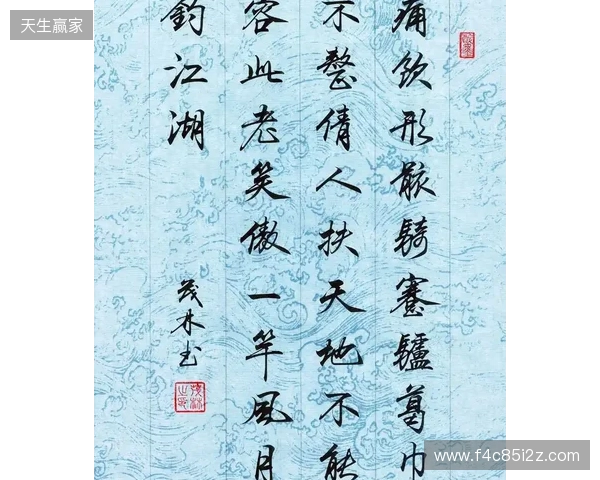 天生赢家
痛饮形骸騎蹇驢葛巾
不整倩人扶天地不能
容此老笑傲一竿風月
釣江湖
茂林书
www.f4c85i2z.com